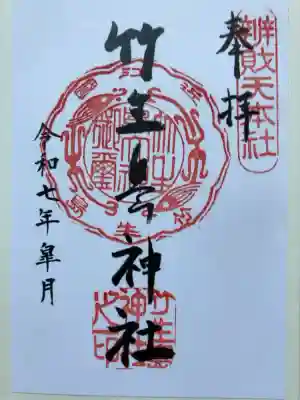 辨財天本社
奉拝
竹生島神社
令和七年皐月